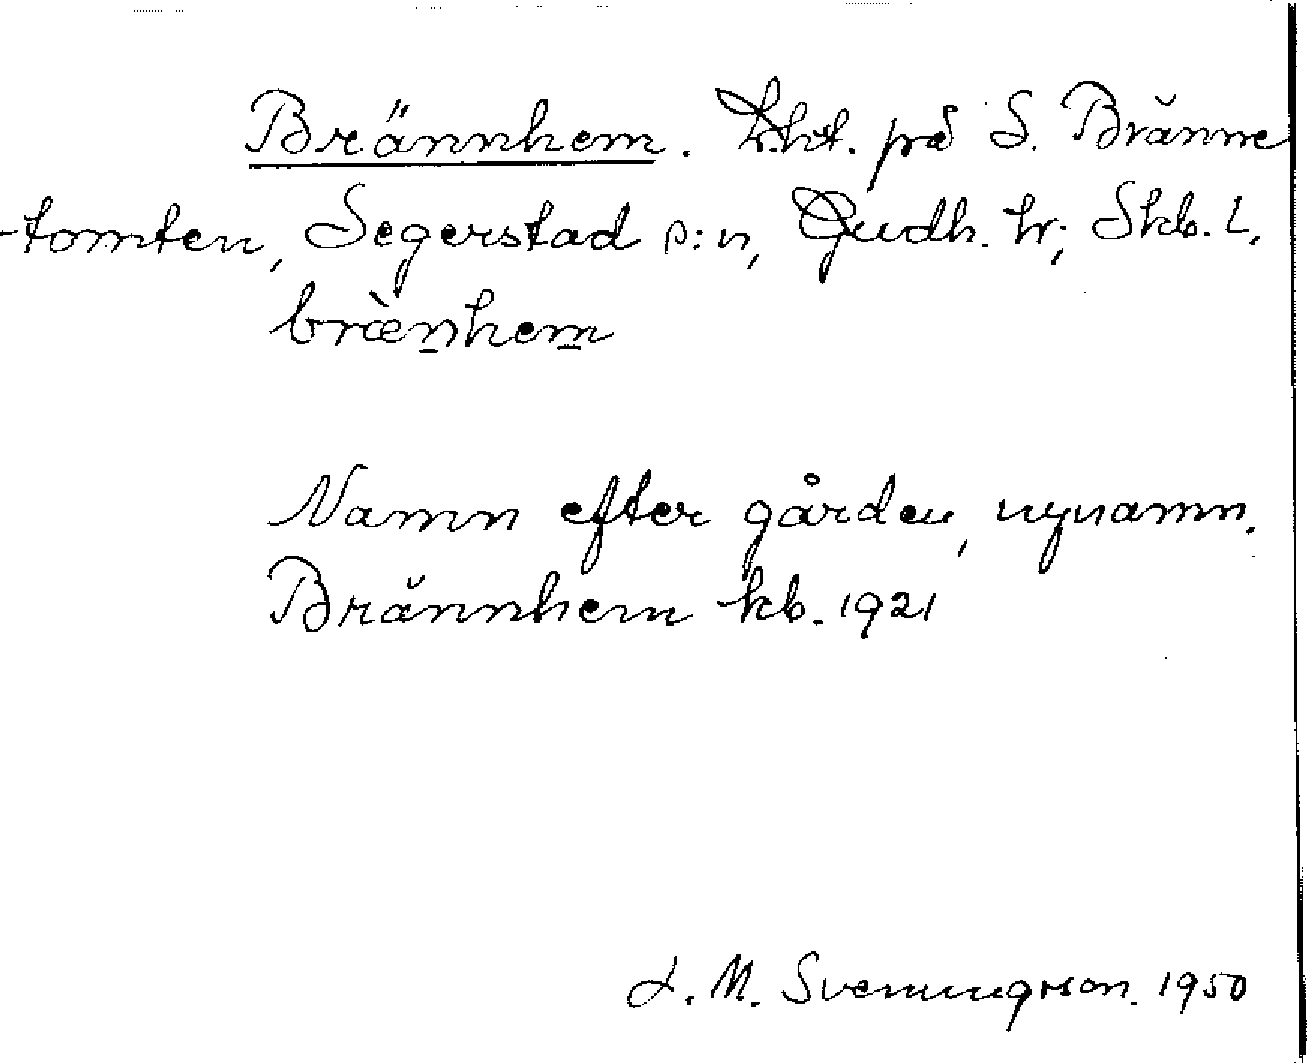 Brännhem. Lht. på S. Bränne
-tomten, Segerstad s:n, Gudh. hr; Skb. L.
bræ̀n̲hem̲
Namn efter gården, nynamn.
Brännhem kb. 1921
L. M. Svenungsson. 1950